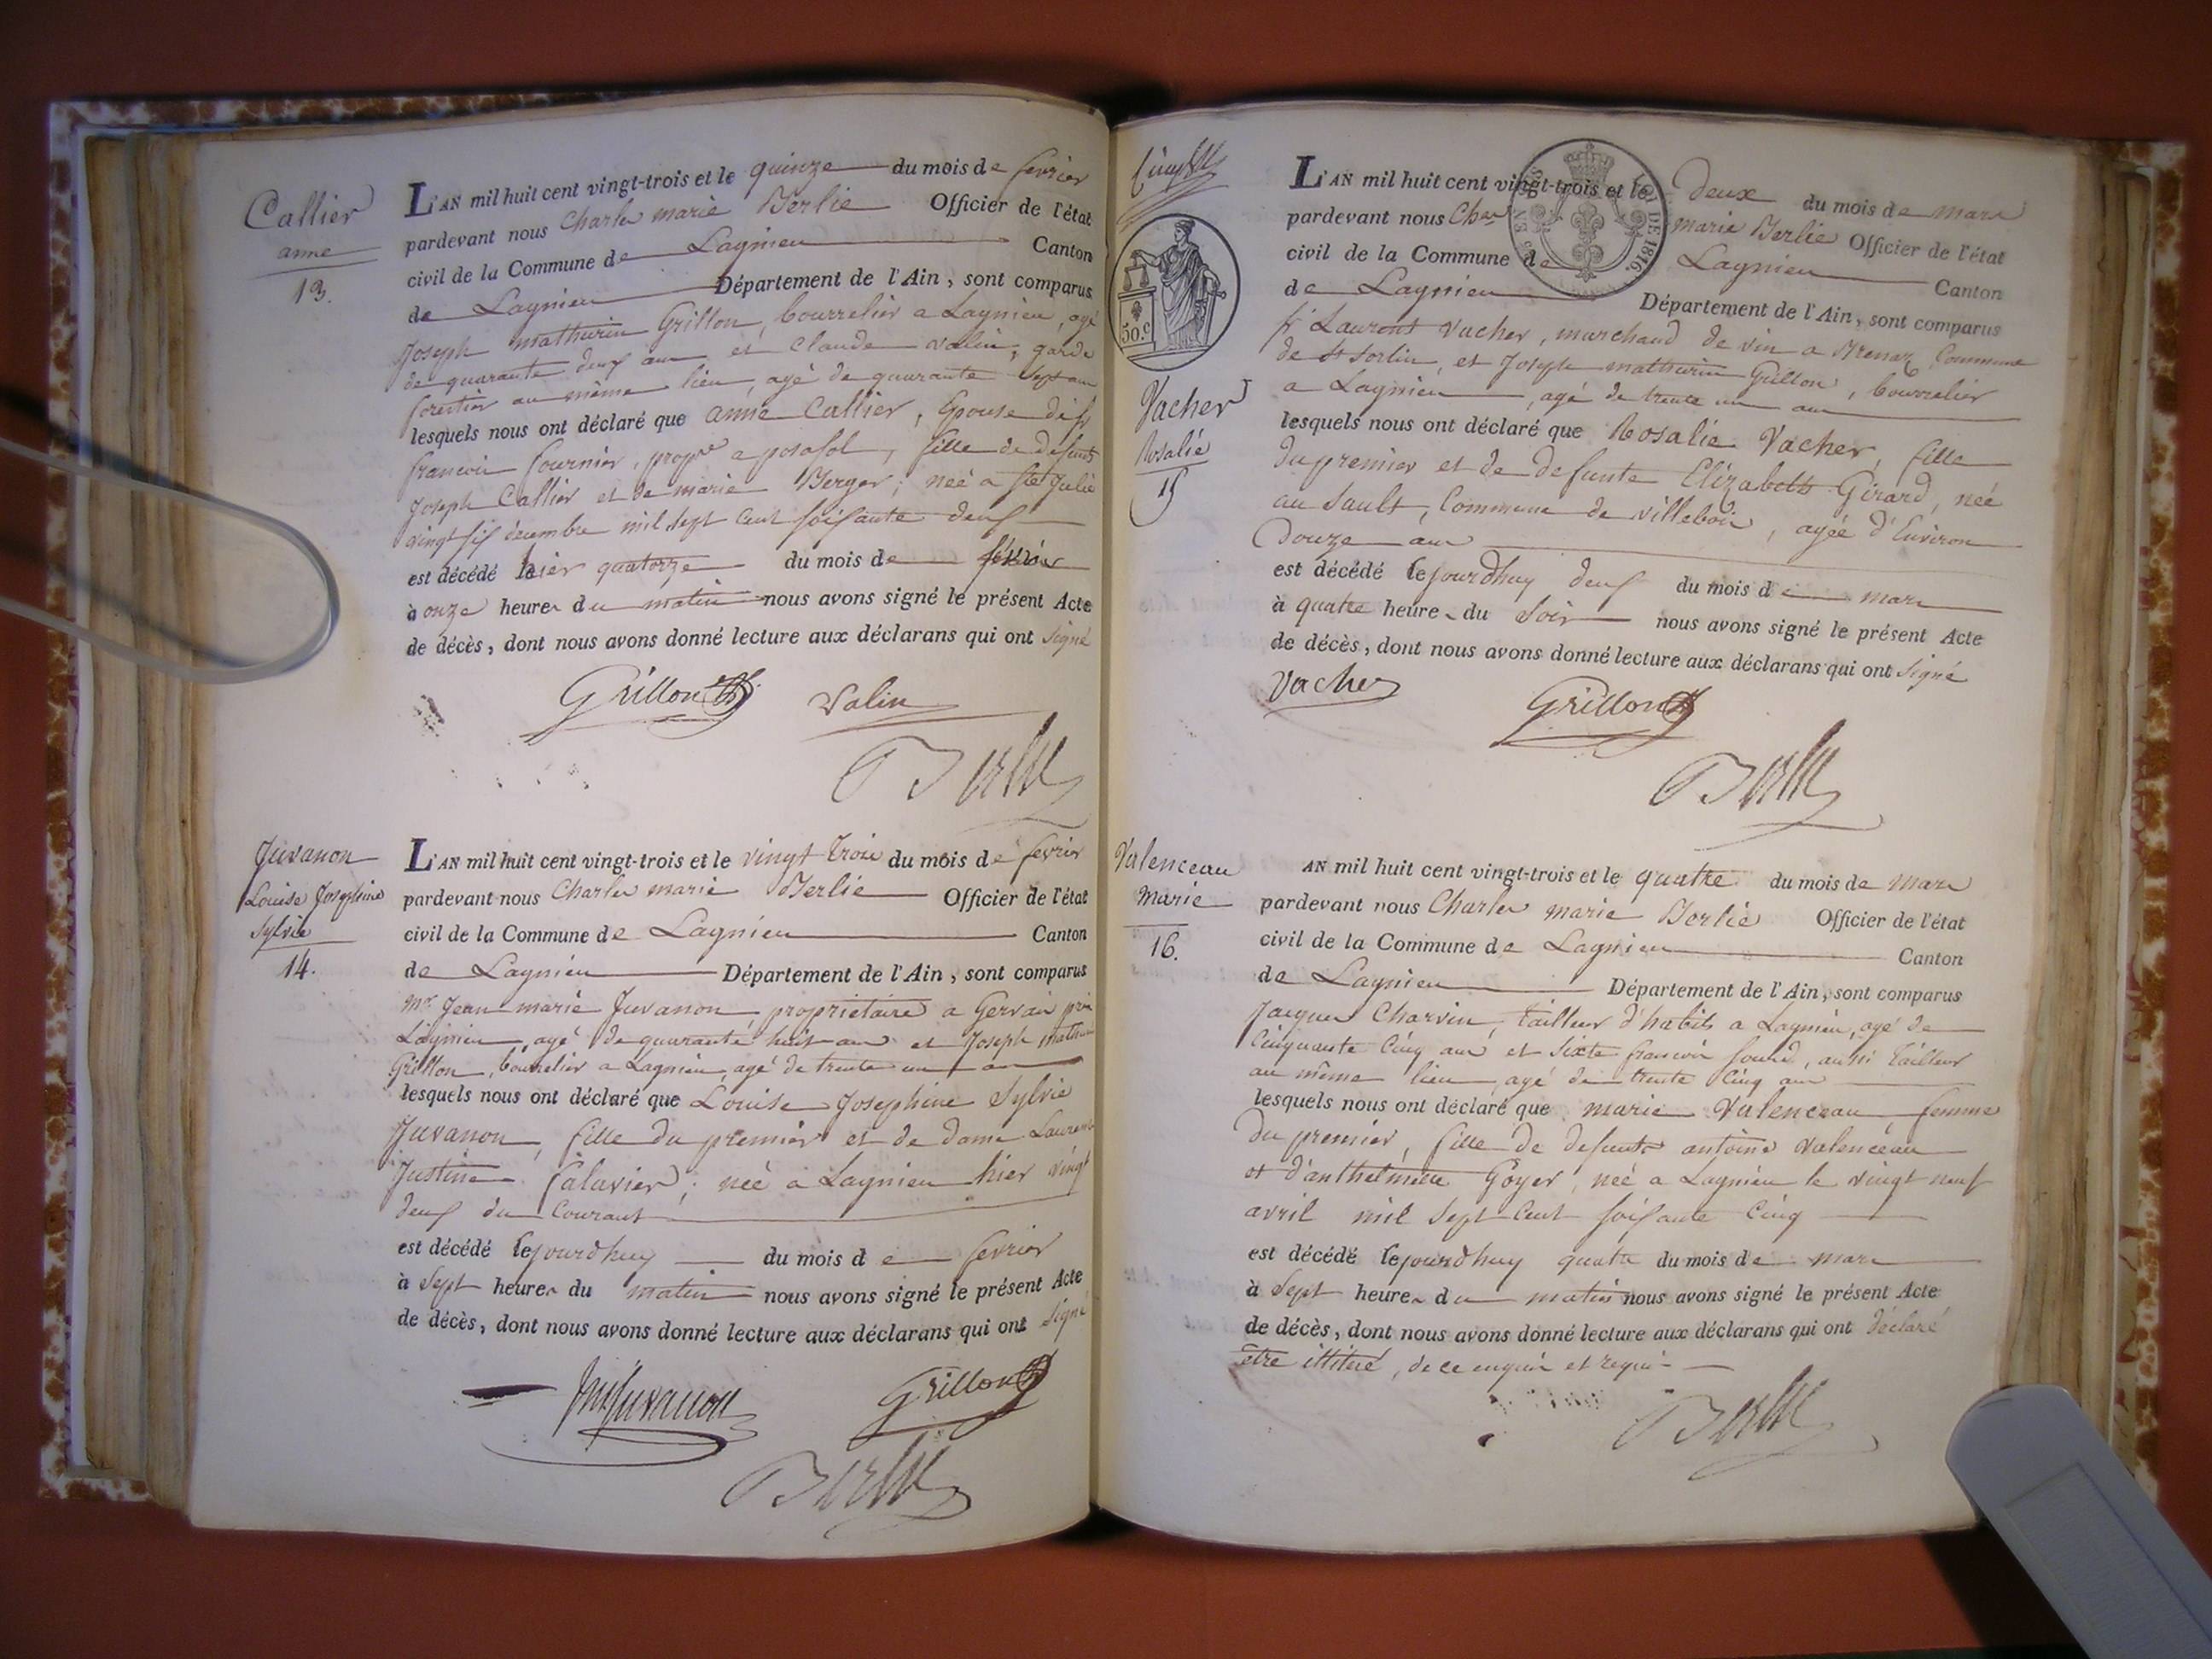 Callier
anne
13.
L'AN mil huit cent vingt-trois et le quinze du mois de fevrier
pardevant nous Charles marie Berlie Officier de l'état
civil de la Commune de Lagnieu Canton
de Lagnieu Département de l'Ain, sont comparus
Joseph mathurin Grillon, bourrelier a Lagnieu, agé
de quarante deux ans et Claude valin, garde
forestier au même lieu, agé de quarante Sept ans
lesquels nous ont déclaré que anne Callier, Epouse de fs
francois fournier, propre a posafol, fille de defunts
Joseph Callier et de marie Berger; neé a ste Julie
vingt six decembre mil sept Cent soixante deux
est décédé hier quatorze du mois de février
à onze heures du matin nous avons signé le présent Acte
de décès, dont nous avons donné lecture aux déclarans qui ont signé
Grillon valin
Berlie
Juvanon
Louise Josephine
Sylvie
14.
L'AN mil huit cent vingt-trois et le vingt trois du mois de fevrier
pardevant nous Charles marie Berlie Officier de l'état
civil de la Commune de Lagnieu Canton
de Lagnieu Département de l'Ain, sont comparus
mr Jean marie Juvanon proprietaire a Gervais près
Lagnieu, agé de quarante huit ans et Joseph mathurin
Grillon, bourrelier a Lagnieu, agé de trente un ans
lesquels nous ont déclaré que Louise Josephine Sylvie
Juvanon, fille du premier et de dame Laurence
Justine Calavier; neé a Lagnieu hier vingt
deux du Courant
est décédé lejourdhuy du mois de fevrier
à Sept heures du matin nous avons signé le présent Acte
de décès, dont nous avons donné lecture aux déclarans qui ont signé
Juvanon Grillon
Berlie
50.c
LOI DE 1816.
Vacher
Rosalie
15
L'AN mil huit cent vingt-trois et le Deux du mois de mars
pardevant nous Chles marie Berlie Officier de l'état
civil de la Commune de Lagnieu Canton
de Lagnieu Département de l'Ain, sont comparus
sr Laurent vacher, marchand de vin a Brenaz, Commune
de St Sorlin, et Joseph mathurin Grillon, bourrelier
a Lagnieu, agé de trente un ans
lesquels nous ont déclaré que Rosalie Vacher, fille
du premier et de defunte Elizabeth Girard, neé
au Sault, Commune de villebois, agée d'Environ
Douze ans
est décédé lejourdhuy deux du mois de mars
à quatre heures du Soir nous avons signé le présent Acte
de décès, dont nous avons donné lecture aux déclarans qui ont signé
vacher Grillon
Berlie
Valenceau
Marie
16.
AN mil huit cent vingt-trois et le quatre du mois de mars
pardevant nous Charles marie Berlie Officier de l'état
civil de la Commune de Lagnieu Canton
de Lagnieu Département de l'Ain, sont comparus
Jacques Charvin, tailleur d'habits a Lagnieu, agé de
Cinquante Cinq ans et Sixte francois sourd, aussi tailleur
au même lieu, agé de trente Cinq ans
lesquels nous ont déclaré que marie Valenceau, femme
du premier, fille de defunts antoine valenceau
et d'anthelmette Goyer, neé a Lagnieu le vingt neuf
avril mil Sept Cent soixante Cinq
est décédé lejourdhuy quatre du mois de mars
à Sept heures du matin nous avons signé le présent Acte
de décès, dont nous avons donné lecture aux déclarans qui ont déclaré
être illitéré, de ce enquis et requis
Berlie